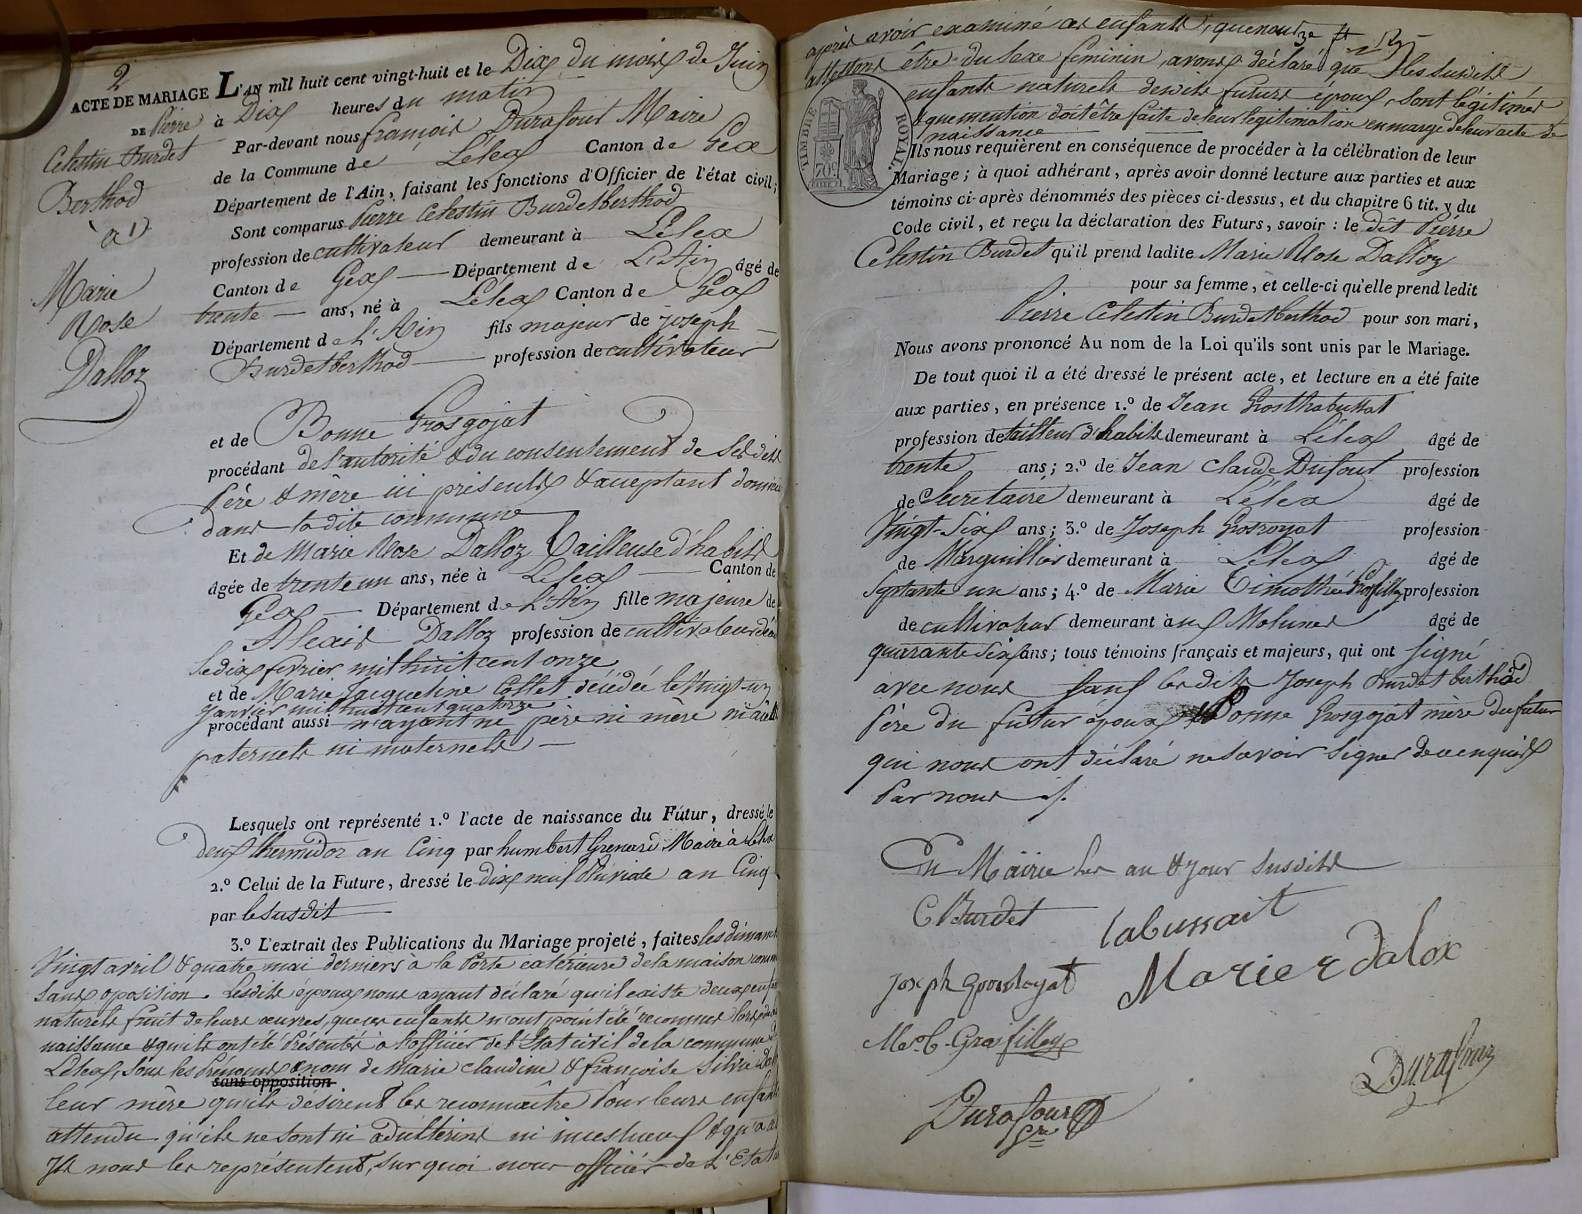 2
ACTE DE MARIAGE L'AN mil huit cent vingt-huit et le Dix du mois de Juin
DE Pierre à Dix heures du matin
Celestin Burdet Par-devant nous françois Durafour Maire
Berthod de la Commune de Lélex Canton de Gex
à Département de l'Ain, faisant les fonctions d'Officier de l'état civil;
Marie Sont comparus Pierre Celestin Burdetberthod
Rose profession de cultivateur demeurant à Lélex
Dalloz Canton de Gex Département de L'Ain âgé de
trente ans, né à Lélex Canton de Gex
Département de L'Ain fils majeur de joseph
Burdetberthod profession de cultivateur
et de Bonne Grosgojat
procédant de l'autorité & du consentement de ses dits
Père & mère ici présents & acceptant
dans la dite commune
Et de Marie Rose Dalloz Tailleuse d'habits
âgée de trente un ans, née à Lélex Canton de
Gex Département de L'Ain fille majeure de
Alexis Dalloz profession de cultivateur
le dix fevrier mil huit cent onze
et de Marie Jacqueline Cottet décédée le vingt-un
janvier mil huit cent quatorze
procédant aussi n'ayant ni père ni mère ni
paternels ni maternels
Lesquels ont représenté 1.º l'acte de naissance du Futur, dressé le
deux thermidor an Cinq par humbert Grenard Maire à Lélex
2.º Celui de la Future, dressé le dix neuf Pluviale an Cinq
par le susdit
3.º L'extrait des Publications du Mariage projeté, faites les
Vingt avril & quatre mai derniers à la Porte exterieure de la maison
sans oposition. Lesdits epoux nous ayant déclaré qu'il existe deux
naturels fruit de leurs œuvres, que ces enfants n'ont point été reconnus
naissance & qu'ils ont été Présentés à l'officier de l'Etat civil de la commune
Lélex, sous les Prénoms & nom de Marie claudine & françoise silvie
sans opposition
leur mère qu'ils désirent les reconnaître Pour leurs
attendu qu'ils ne sont ni adulterins ni incestueux
nous les représentent, sur quoi nous officier de L'Etat
après avoir examiné ces enfants, que nous
attestons être du sexe feminin, avons déclaré que les susdits
enfants naturels desdits futurs époux, sont légitimés
& que mention doit être faite de leur legitimation en marge de leur acte de
naissance
TIMBRE ROYAL.
70.c
Ils nous requièrent en conséquence de procéder à la célébration de leur
Mariage; à quoi adhérant, après avoir donné lecture aux parties et aux
témoins ci-après dénommés des pièces ci-dessus, et du chapitre 6 tit. v du
Code civil, et reçu la déclaration des Futurs, savoir : le dit Pierre
Celestin Burdet qu'il prend ladite Marie Rose Dalloz
pour sa femme, et celle-ci qu'elle prend ledit
Pierre Celestin Burdetberthod pour son mari,
Nous avons prononcé Au nom de la Loi qu'ils sont unis par le Mariage.
De tout quoi il a été dressé le présent acte, et lecture en a été faite
aux parties, en présence 1.º de Jean Grosthabussat
profession de tailleur d'habits demeurant à Lélex âgé de
trente ans; 2.º de Jean Claude Dufour profession
de Secretaire demeurant à Lélex âgé de
Vingt-Six ans; 3.º de Joseph Grosroyat profession
de Marguillier demeurant à Lélex âgé de
septante un ans; 4.º de Marie Timothée Grosfilley profession
de cultivateur demeurant à Molunes âgé de
quarante Six ans; tous témoins français et majeurs, qui ont signé
avec nous sauf lesdits Joseph Burdet berthod
Père du futur époux & Bonne Grosgojat mère du futur
qui nous ont déclaré ne savoir signer de ce enquis
Par nous
En Mairie les an & jour susdits
C Burdet
labussait
Joseph grosroyat
Marie r daloz
M. t. Grosfilley
Durafour
Durafour